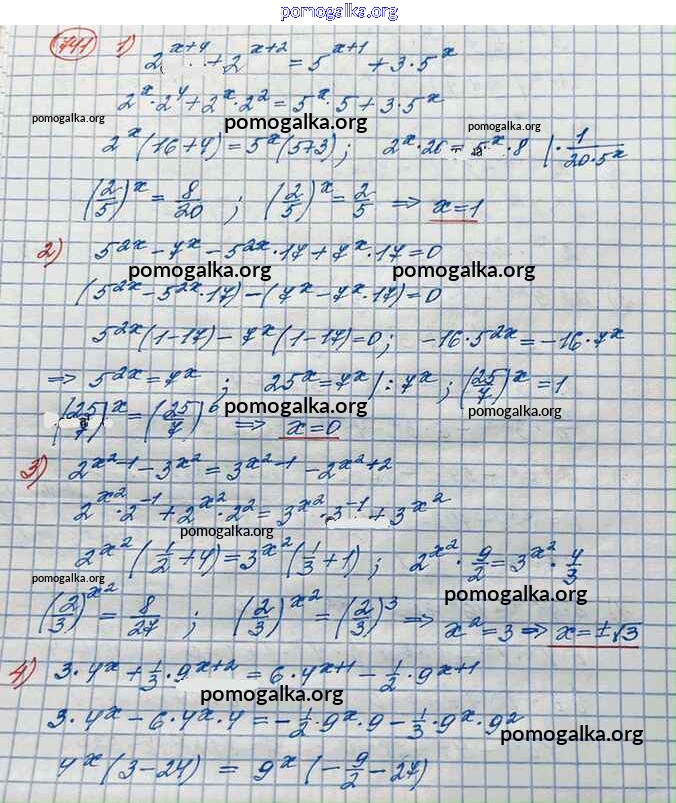 pomogalka.org
741 1) 2^(x+4) + 2^(x+2) = 5^(x+1) + 3·5^x
2^x·2^4 + 2^x·2^2 = 5^x·5 + 3·5^x
pomogalka.org pomogalka.org pomogalka.org
2^x(16+4) = 5^x(5+3); 2^x·20 = 5^x·8 |·1/(20·5^x)
(2/5)^x = 8/20 ; (2/5)^x = 2/5 ⇒ x=1
2) 5^(2x) − 7^x − 5^(2x)·17 + 7^x·17 = 0
pomogalka.org pomogalka.org
(5^(2x) − 5^(2x)·17) − (7^x − 7^x·17) = 0
5^(2x)(1−17) − 7^x(1−17) = 0; −16·5^(2x) = −16·7^x
⇒ 5^(2x) = 7^x ; 25^x = 7^x |:7^x ; (25/7)^x = 1
pomogalka.org pomogalka.org
(25/7)^x = (25/7)^0 ⇒ x=0
3) 2^(x²−1) − 3^(x²) = 3^(x²−1) − 2^(x²+2)
2^(x²)·2^(−1) + 2^(x²)·2^2 = 3^(x²)·3^(−1) + 3^(x²)
pomogalka.org
2^(x²)(1/2+4) = 3^(x²)(1/3+1) ; 2^(x²)·9/2 = 3^(x²)·4/3
pomogalka.org pomogalka.org
(2/3)^(x²) = 8/27 ; (2/3)^(x²) = (2/3)^3 ⇒ x²=3 ⇒ x=±√3
4) 3·4^x + 1/3·9^(x+2) = 6·4^(x+1) − 1/2·9^(x+1)
pomogalka.org
3·4^x − 6·4^x·4 = −1/2·9^x·9 − 1/3·9^x·9^2
pomogalka.org
4^x(3−24) = 9^x(−9/2−27)